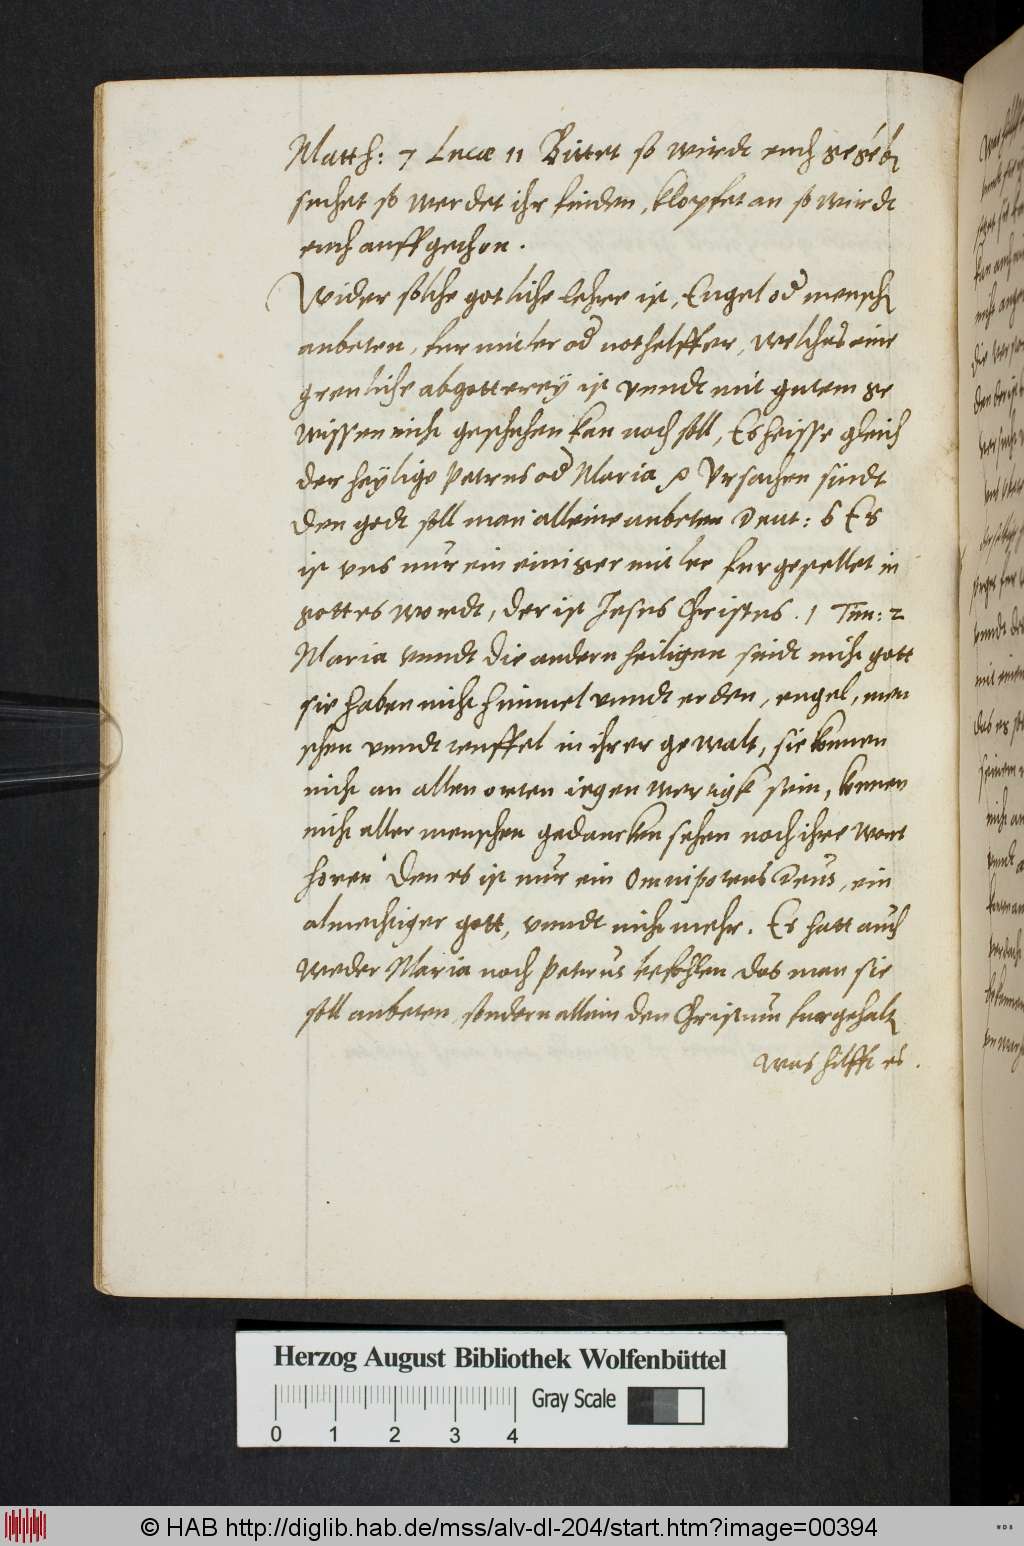 Matth: 7 Lucæ 11 Bittet so wirdt euch gegeb
suchet so werdet ihr finden, klopfet an so wirdt
euch auffgethon.
Wider solche gotliche lehre ist, Engel od mensch
anbeten, fur mitler od nothelffer, welches eine
greuliche abgotterey ist vnndt mit gutem ge
wissen nicht geschehen kan noch soll, Es heisse gleich
der heylige Petrus od Maria Vrsachen sindt
den godt soll man alleine anbeten Deut: 6 Es
ist vns nur ein einiger mitler furgestellet in
gottes wordt, der ist Jesus Christus. 1 Tim: 2
Maria vnndt die andern heiligen sindt nicht gott
sie haben nicht himmel vnndt erden, engel, men
schen vnndt teuffel in ihrer gewalt, sie konnen
nicht an allen orten iegenwertigk sein, konnen
nicht aller menschen gedancken sehen noch ihre wort
horen Den es ist nur ein Omnipotens Deus, ein
almechtiger gott, vnndt nicht mehr. Es hatt auch
weder Maria noch Petrus befohlen das man sie
soll anbeten, sondern allein den Christum furgehalt
Was hilfft es.
Herzog August Bibliothek Wolfenbüttel
0 1 2 3 4 Gray Scale
© HAB http://diglib.hab.de/mss/alv-dl-204/start.htm?image=00394